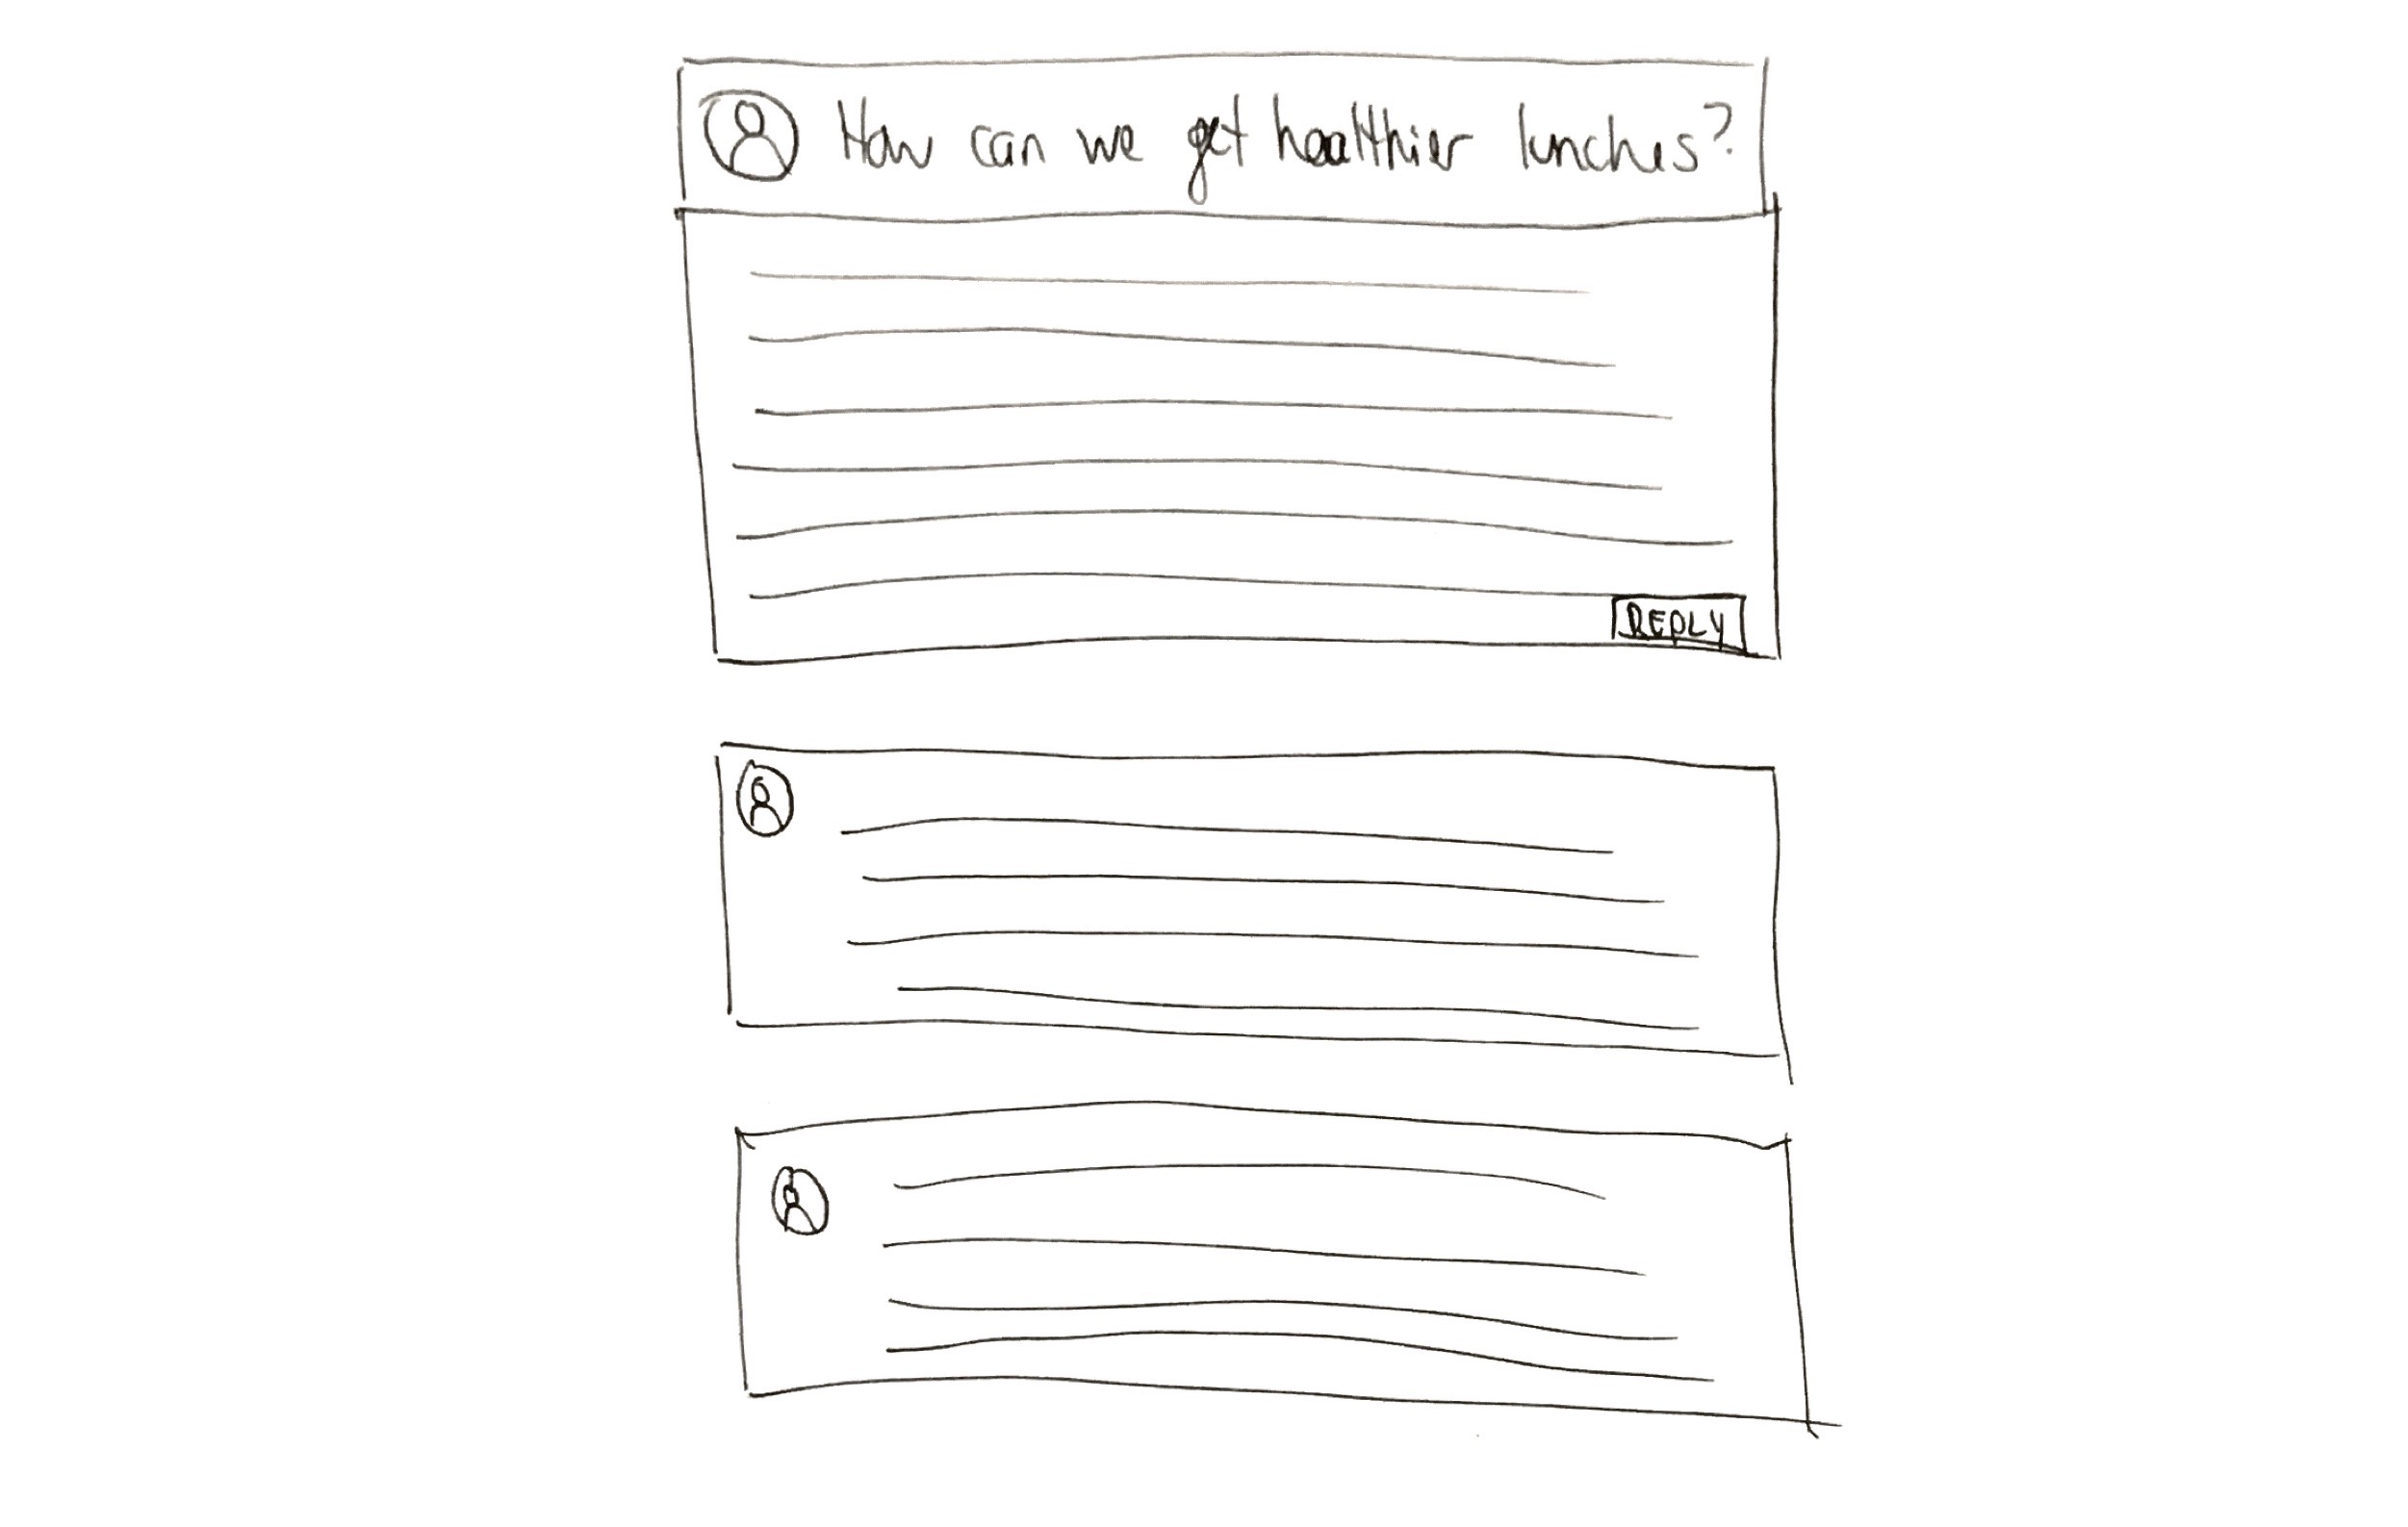 How can we get healthier lunches?
REPLY